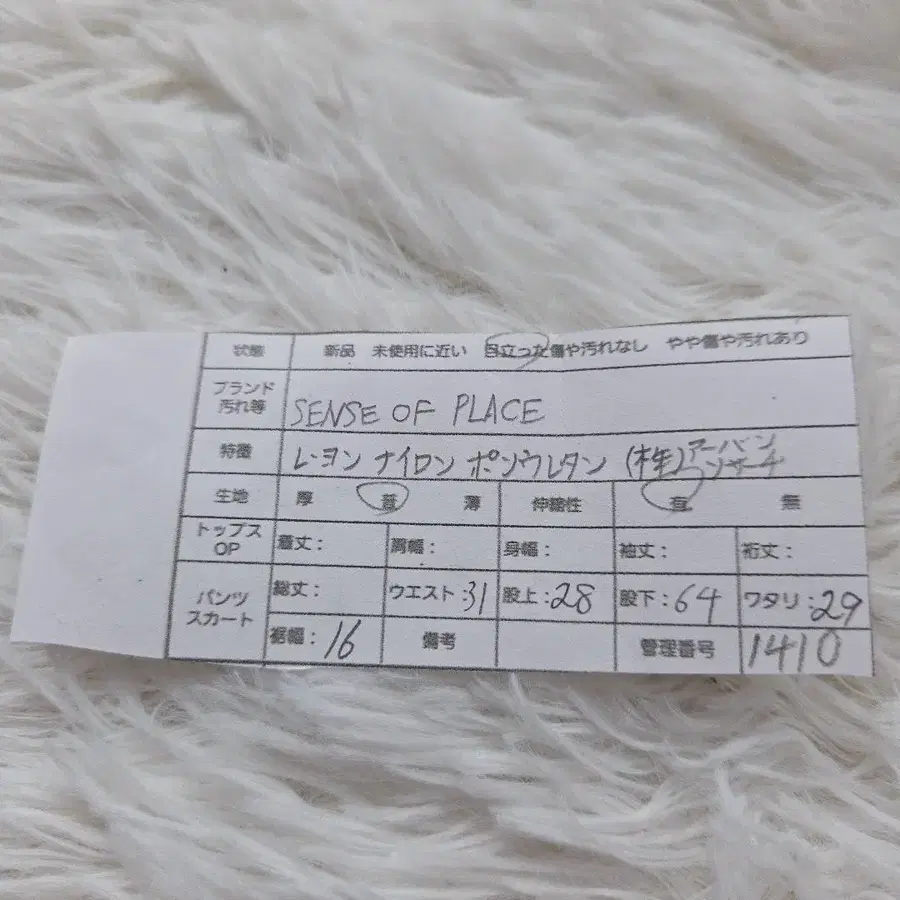 状態 新品 未使用に近い 目立った傷や汚れなし やや傷や汚れあり
ブランド
汚れ等
SENSE OF PLACE
特徴 レーヨン ナイロン ポンウレタン (株)アーバン
ンサーチ
生地 厚 普 薄 伸縮性 有 無
トップス
OP
着丈: 肩幅: 身幅: 袖丈: 裄丈:
パンツ
スカート
総丈: ウエスト:31 股上:28 股下:64 ワタリ:29
裾幅:16 備考 管理番号 1410